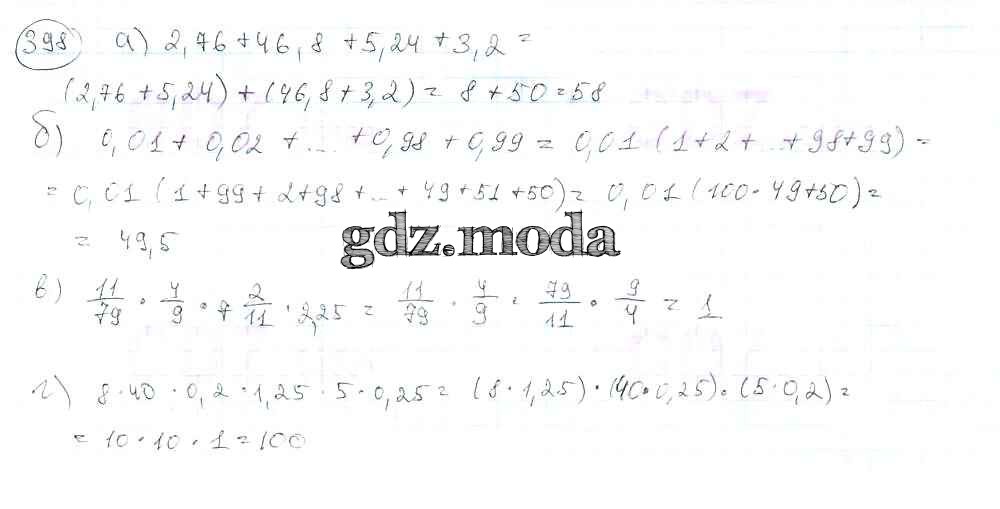 398 а) 2,76+46,8+5,24+3,2=
(2,76+5,24)+(46,8+3,2)= 8+50=58
б) 0,01+0,02+...+0,98+0,99= 0,01(1+2+...+98+99)=
=0,01(1+99+2+98+...+49+51+50)= 0,01(100·49+50)=
= 49,5
gdz.moda
в) 11/79 · 4/9 · 7 2/11 · 2,25 = 11/79 · 4/9 · 79/11 · 9/4 = 1
г) 8·40·0,2·1,25·5·0,25= (8·1,25)·(40·0,25)·(5·0,2)=
=10·10·1=100